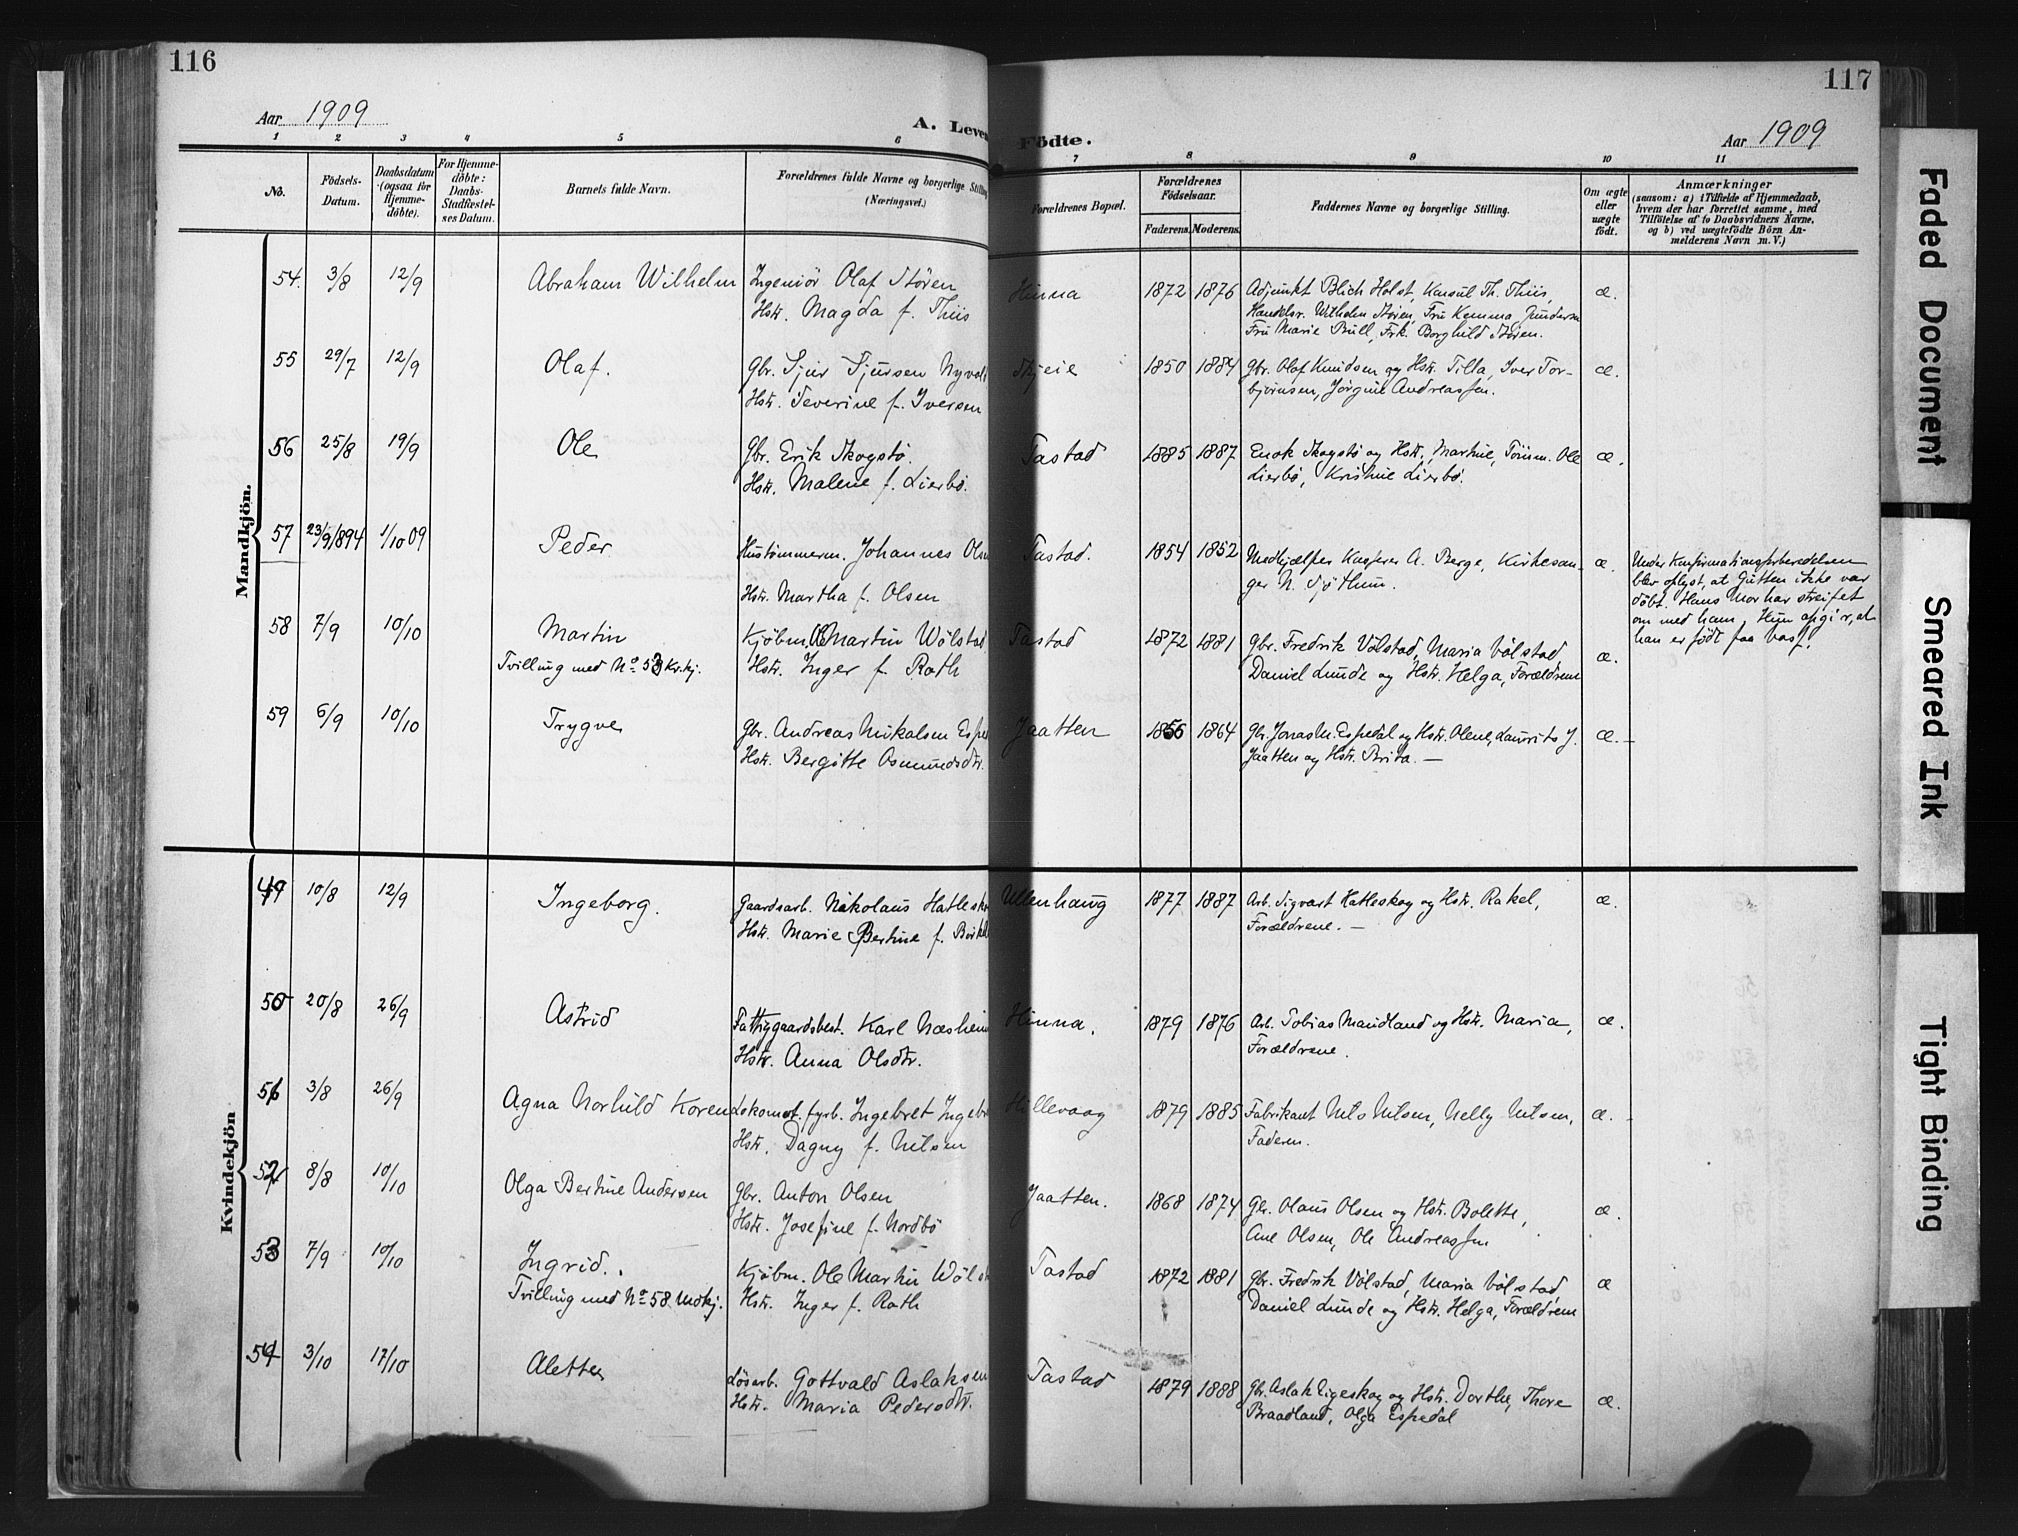 116
Aar 1909
A. Leven
1 2 3 4 5 6
No.
Födsels-Datum.
Daabsdatum (ogsaa for Hjemme-döbte).
For Hjemme-döbte: Daabs-Stadfæstel-ses Datum.
Barnets fulde Navn.
Forældrenes fulde Navne og borgerlige Stilling
(Næringsvei.)
Mandkjön.
54. 3/8 12/9 Abraham Wilhelm Ingeniör Olaf Stören
Hstr. Magda f. Thiis
55 29/7 12/9 Olaf. Gbr. Sjur Sjursen
Hstr. Severine f. Iversen
56 25/8 19/9 Ole Gbr. Erik Skogstö.
Hstr. Malene f. Lierbö.
57 23/9 1894 1/10 09 Peder Hustömmerm. Johannes Olsen
Hstr. Martha f. Olsen
58 7/9 10/10 Martin Kjöbm. Ole Martin Wölstad
Tvilling med No 53 Kv.kj. Hstr. Inger f. Roth
59 6/9 10/10 Trygve Gbr. Andreas Mikalsen Espe
Hstr. Bergitte Osmundsdtr.
Kvindekjön
49 10/8 12/9 Ingeborg. Gaardsarb. Nikolaus Hatlesk
Hstr. Marie Bertine f. Birkel
50 20/8 26/9 Astrid Fattiggaardsbest. Karl Næsheim
Hstr. Anna Olsdtr.
51 3/8 26/9 Agna Norhild Koren Lokomot. fyrb. Ingebret Ingebr
Hstr. Dagny f. Nilsen
52 8/8 10/10 Olga Bertine Andersen Gbr. Anton Olsen
Hstr. Josefine f. Nordbö
53 7/9 10/10 Ingrid. Kjöbm. Ole Martin Wölst
Tvilling med No 58. Mdkj. Hstr. Inger f. Roth
54 3/10 17/10 Alette Lösarb. Gottvald Aslaksen
Hstr. Maria Pedersdtr.
117
Födte.
Aar 1909
7 8 9 10 11
Forældrenes Bopæl.
Forældrenes Födselsaar.
Faderens. Moderens.
Faddernes Navne og borgerlige Stilling.
Om ægte eller uægte födt.
Anmærkninger
(saasom: a) i Tilfælde af Hjemmedaab,
hvem der har forrettet samme, med
Tilföielse af to Daabsvidners Navne,
og b) ved uægtefödte Börn An-
melderens Navn m. V.)
Hinna 1872 1876 Adjunkt Blich Holst, Konsul Th. Thiis, æ.
Handelsr. Wilhelm Stören, Fru Kemma Gundersen
Fru Marie Bull, Frk. Borghild Stören.
Skjeie 1850 1884 Gbr. Olaf Knudsen og Hstr. Tilla, Iver Tor- æ.
björnsen, Jörgine Andreassen.
Tastad 1885 1887 Enok Skogstö og Hstr. Martine, Tömm. Ole æ.
Lierbö, Kristine Lierbö.
Tastad. 1854 1852 Medhjælper Kasper A. Berge, Kirkesan- æ.
ger N. Sjöthun.
Under Konfirmationsforberedelsen
blev oplyst, at Gutten ikke var
döbt. Hans Mor har streifet
om med ham. Hun opgir, at
han er födt paa Vosf.
Tastad 1872 1881 Gbr. Fredrik Völstad, Maria Völstad æ.
Daniel Lunde og Hstr. Helga, Forældrene
Jaatten 1856 1864 Gbr. Jonas M. Espedal og Hstr. Olene, Laurits J. æ.—
Jaatten og Hstr. Brita. —
Ullenhaug 1877 1887 Arb. Sigvart Hatleskog og Hstr. Rakel, æ.
Forældrene. —
Hinna. 1879 1876 Arb. Tobias Maudland og Hstr. Maria, æ.
Forældrene.
Hillevaag 1879 1885 Fabrikant Nils Nilsen, Nelly Nilsen, æ.
Faderen.
Jaatten. 1868 1874 Gbr. Olaus Olsen og Hstr. Bolette, æ.
Ane Olsen, Ole Andreassen
Tastad 1872 1881 Gbr. Fredrik Völstad, Maria Völstad, æ
Daniel Lunde og Hstr. Helga, Forældrene
Tastad 1879 1888 Gbr. Aslak Eigeskog og Hstr. Dorthe, Thore æ.
Braadland, Olga Espedal
Faded Document
Smeared Ink
Tight Binding